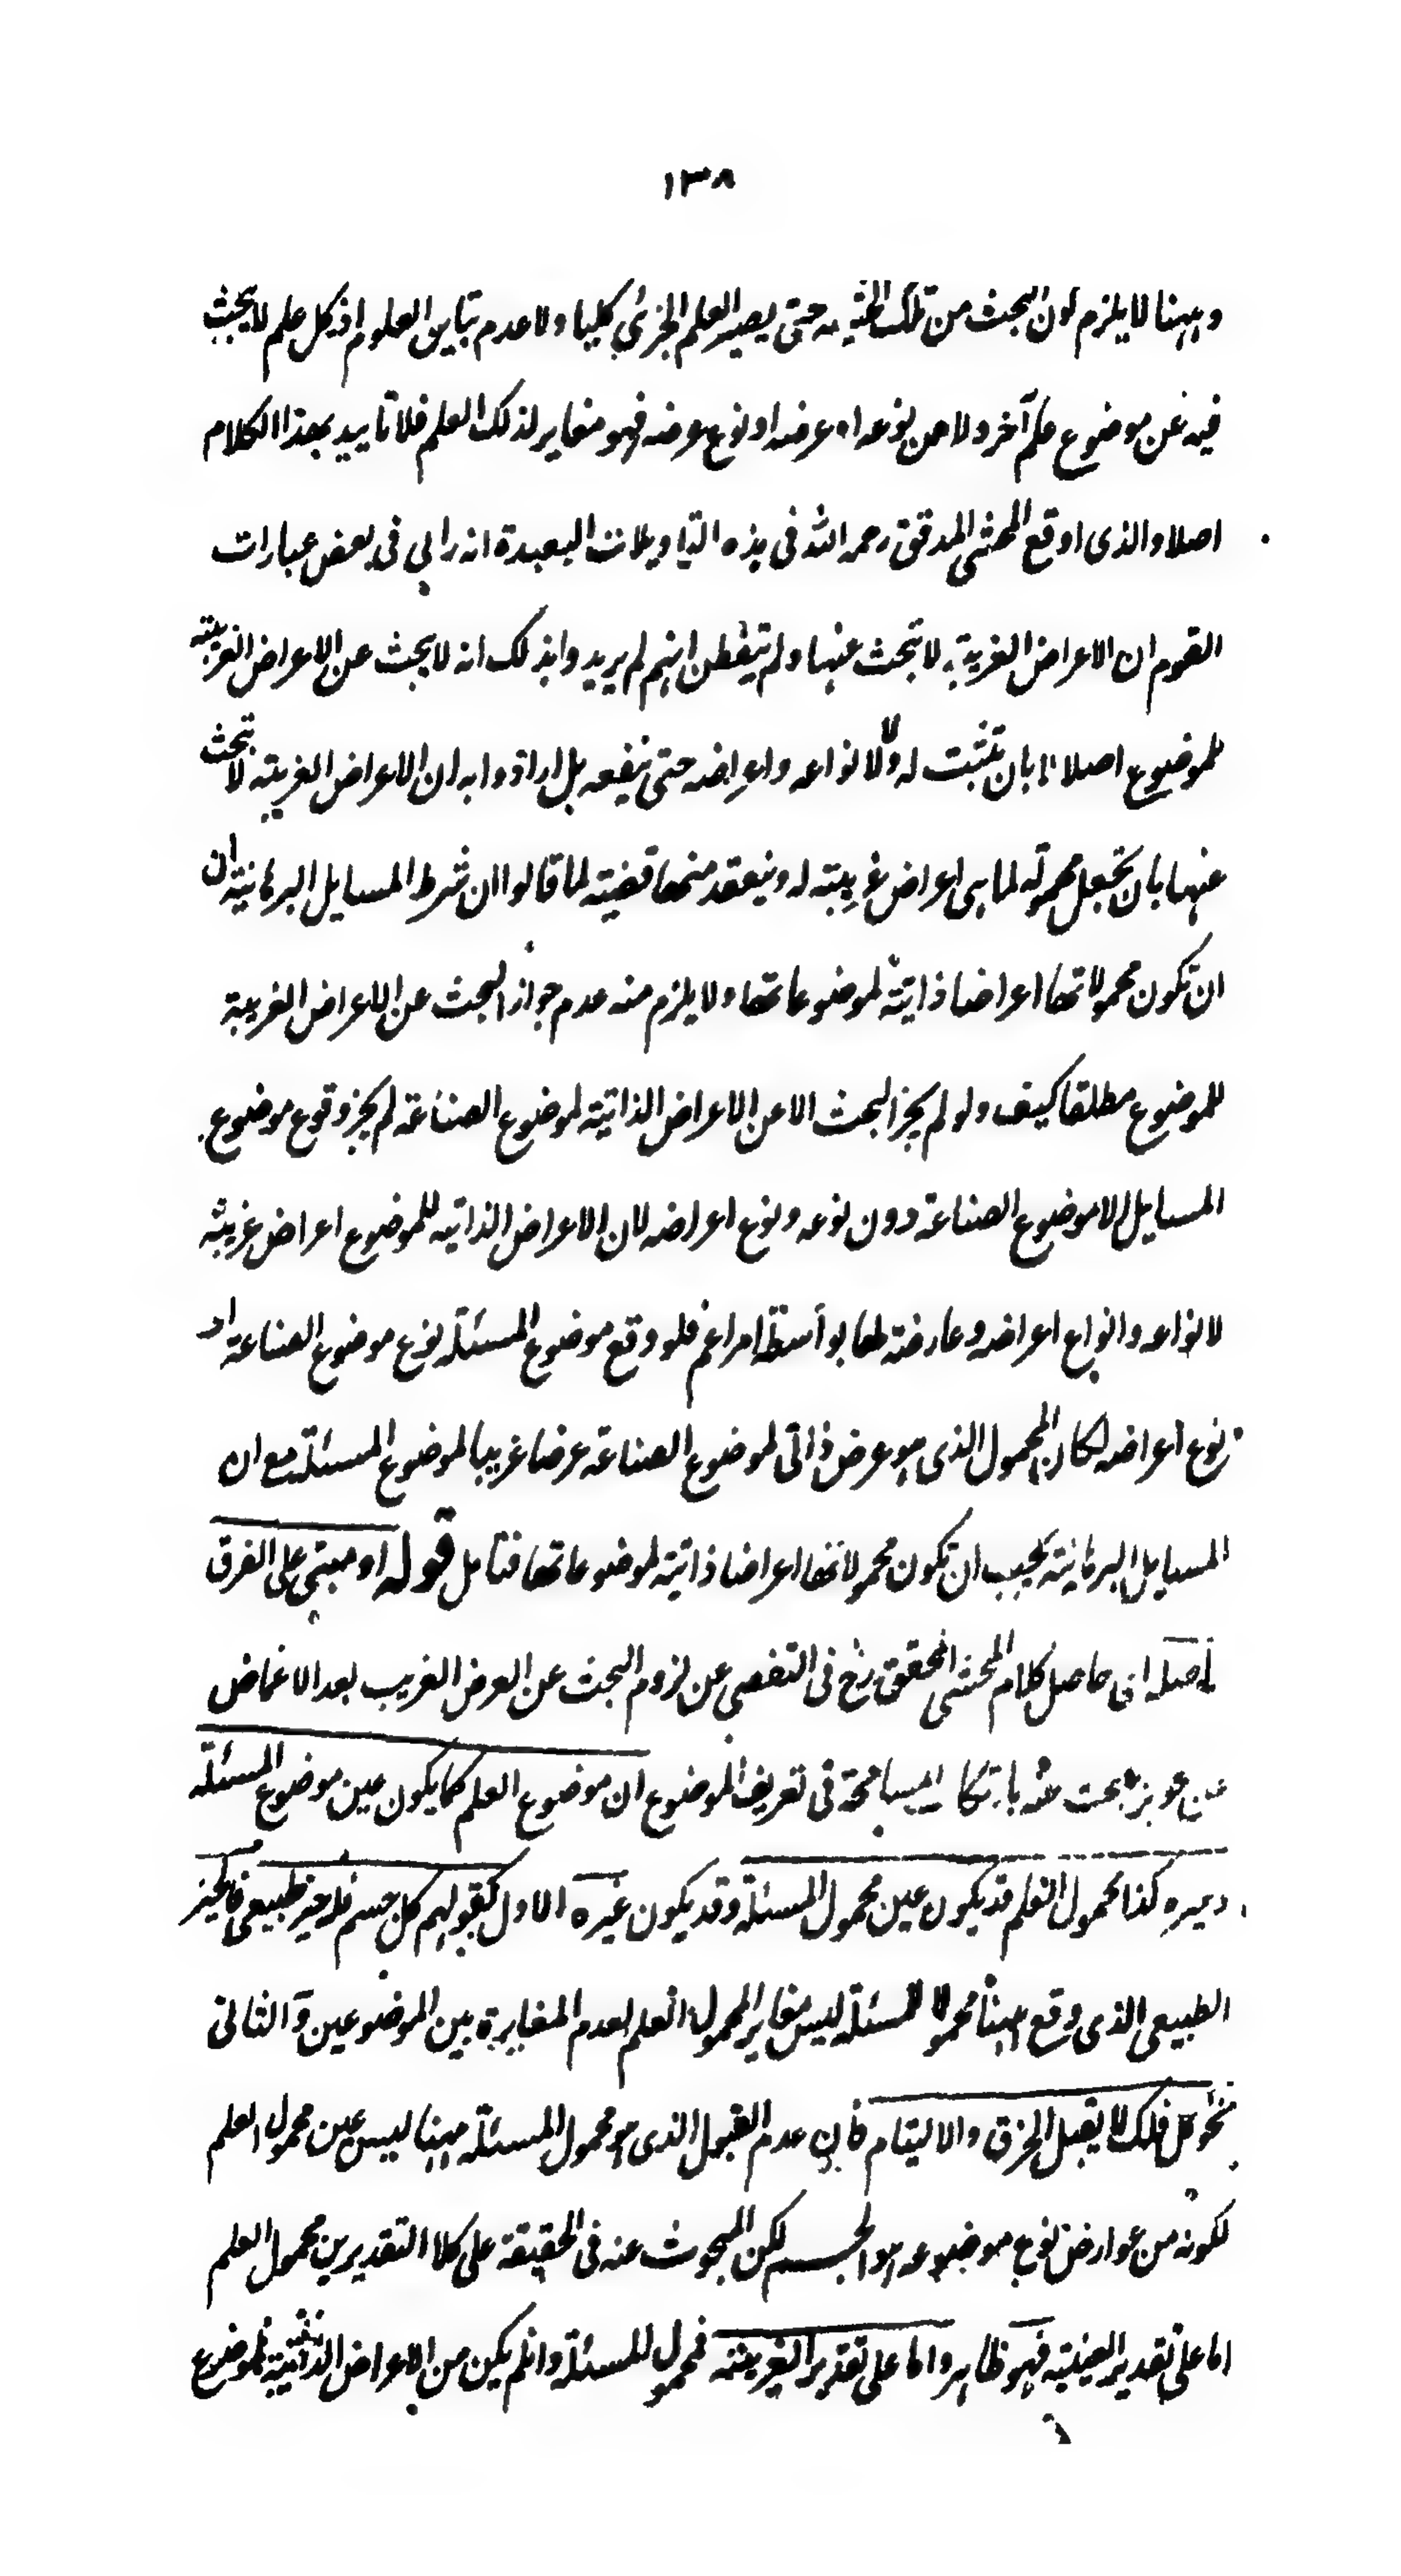 ١٣٨
وههنا لا يلزم كون البحث من تلك الحيثية حتى يصير العلم الجزئي كليا ولا عدم تباين العلوم اذ كل علم لا يبحث
فيه عن موضوع علم آخر ولا عن نوعه او عرضه او نوع عرضه فهو مغاير لذلك العلم فلا تاييد بهذا الكلام
اصلا والذى اوقع المحشى المدقق رحمه الله فى هذه التاويلات البعيدة انه راى فى بعض عبارات
القوم ان الاعراض الغريبة لا تبحث عنها ولم يتفطن انهم لم يريدوا بذلك انه لا يبحث عن الاعراض الغريبة
للموضوع اصلا لا بان تثبت له ولا لانواعه واعراضه حتى ينفعه بل ارادوا به ان الاعراض الغريبة لا تبحث
عنها بان تجعل محمولة لما هى اعراض غريبة له وينعقد منها قضية لما قالوا ان شرط المسايل البرهانية ان
ان تكون محمولاتها اعراضا ذاتية لموضوعاتها ولا يلزم منه عدم جواز البحث عن الاعراض الغريبة
للموضوع مطلقا كيف ولو لم يجز البحث الا عن الاعراض الذاتية لموضوع الصناعة لم يجز وقوع موضوع
المسايل الا موضوع الصناعة دون نوعه ونوع اعراضه لان الاعراض الذاتيه للموضوع اعراض غريبة
لانواعه وانواع اعراضه وعارضة لها بواسطة امر اعم فلو وقع موضوع المسئلة نوع موضوع الصناعة او
نوع اعراضه لكان المحمول الذى هو عرض ذاتى لموضوع الصناعة عرضا غريبا لموضوع المسئلة مع ان
المسايل البرهانية يجب ان تكون محمولاتها اعراضا ذاتية لموضوعاتها فتامل قوله او مبنى على الفرق
حاصله ان حاصل كلام المحشى المحقق رح فى التفصى عن لزوم البحث عن العرض الغريب بعد الاغماض
عن البحث عنه المسامحة فى تعريف الموضوع ان موضوع العلم كما يكون عين موضوع المسئلة
وغيره كذا محمول العلم قد يكون عين محمول المسئلة وقد يكون غيره الاول كقولهم كل جسم فله حيز طبيعى فالحيز
الطبيعى الذى وقع ههنا محمولا للمسئلة ليس مغاير المحمول العلم لعدم المغايرة بين الموضوعين والثانى
نحو كل فلك لا يقبل الخرق والالتيام فان عدم القبول الذى هو محمول المسئلة ههنا ليس عين محمول العلم
لكونه من عوارض نوع موضوعه هو الجسم لكن المبحوث عنه فى الحقيقة على كلا التقديرين محمول العلم
اما على تقدير العينية فهو ظاهر واما على تقدير الغيرية فمحمول للمسئلة وان لم يكن من الاعراض الذاتية لموضوع